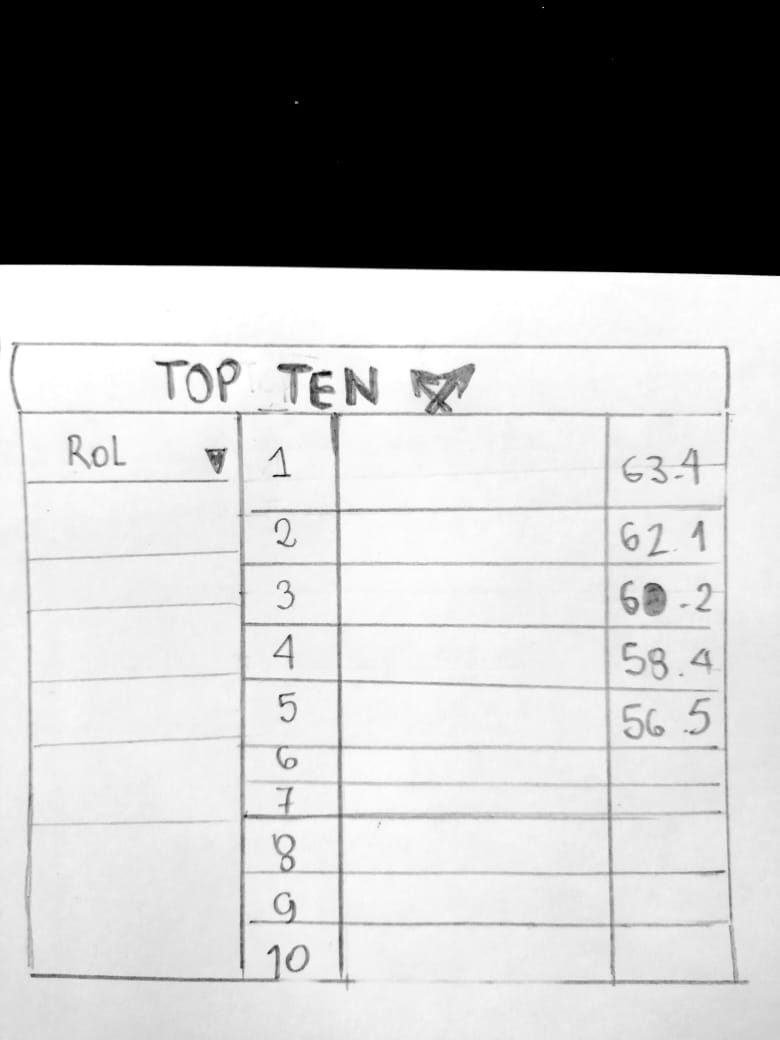 TOP TEN
ROL
1 63.4
2 62.1
3 60.2
4 58.4
5 56.5
6
7
8
9
10